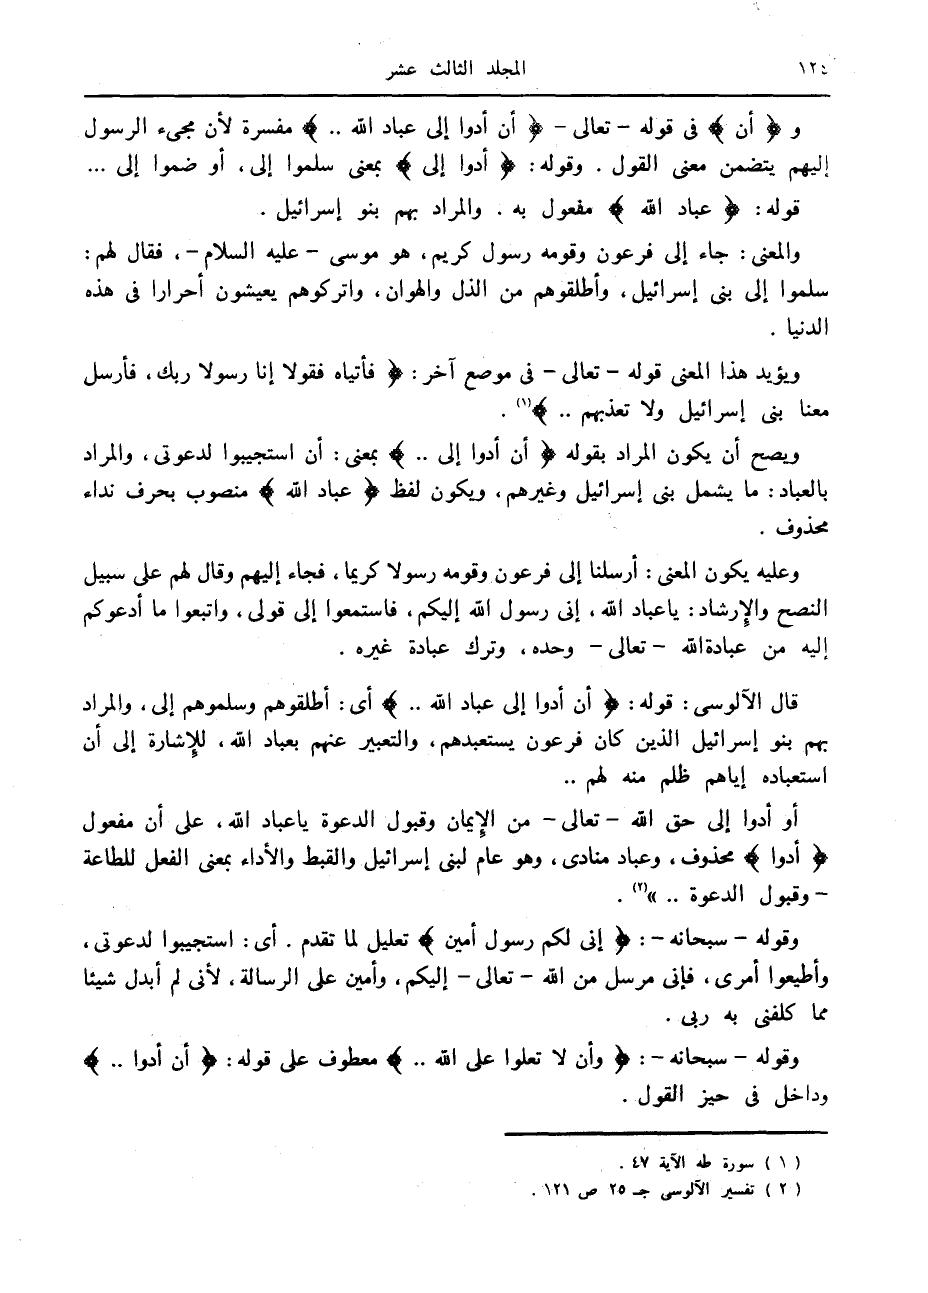 ١٢٤ المجلد الثالث عشر
و ﴿ أن ﴾ فى قوله – تعالى – ﴿ أن أدوا إلى عباد الله .. ﴾ مفسرة لأن مجىء الرسول
إليهم يتضمن معنى القول . وقوله : ﴿ أدوا إلى ﴾ بمعنى سلموا إلى ، أو ضموا إلى ...
قوله : ﴿ عباد الله ﴾ مفعول به . والمراد بهم بنو إسرائيل .
والمعنى : جاء إلى فرعون وقومه رسول كريم ، هو موسى – عليه السلام – ، فقال لهم :
سلموا إلى بنى إسرائيل ، وأطلقوهم من الذل والهوان ، واتركوهم يعيشون أحرارا فى هذه
الدنيا .
ويؤيد هذا المعنى قوله – تعالى – فى موضع آخر : ﴿ فأتياه فقولا إنا رسولا ربك ، فأرسل
معنا بنى إسرائيل ولا تعذبهم .. ﴾(١) .
ويصح أن يكون المراد بقوله ﴿ أن أدوا إلى .. ﴾ بمعنى : أن استجيبوا لدعوتى ، والمراد
بالعباد : ما يشمل بنى إسرائيل وغيرهم ، ويكون لفظ ﴿ عباد الله ﴾ منصوب بحرف نداء
محذوف .
وعليه يكون المعنى : أرسلنا إلى فرعون وقومه رسولا كريما ، فجاء إليهم وقال لهم على سبيل
النصح والإرشاد : ياعباد الله ، إنى رسول الله إليكم ، فاستمعوا إلى قولى ، واتبعوا ما أدعوكم
إليه من عبادةالله – تعالى – وحده ، وترك عبادة غيره .
قال الآلوسى : قوله : ﴿ أن أدوا إلى عباد الله .. ﴾ أى : أطلقوهم وسلموهم إلى ، والمراد
بهم بنو إسرائيل الذين كان فرعون يستعبدهم ، والتعبير عنهم بعباد الله ، للإشارة إلى أن
استعباده إياهم ظلم منه لهم ..
أو أدوا إلى حق الله – تعالى – من الإيمان وقبول الدعوة ياعباد الله ، على أن مفعول
﴿ أدوا ﴾ محذوف ، وعباد منادى ، وهو عام لبنى إسرائيل والقبط والأداء بمعنى الفعل للطاعة
– وقبول الدعوة .. »(٢) .
وقوله – سبحانه – : ﴿ إنى لكم رسول أمين ﴾ تعليل لما تقدم . أى : استجيبوا لدعوتى ،
وأطيعوا أمرى ، فإنى مرسل من الله – تعالى – إليكم ، وأمين على الرسالة ، لأنى لم أبدل شيئا
مما كلفنى به ربى .
وقوله – سبحانه – : ﴿ وأن لا تعلوا على الله .. ﴾ معطوف على قوله : ﴿ أن أدوا .. ﴾
وداخل فى حيز القول .
( ١ ) سورة طه الآية ٤٧ .
( ٢ ) تفسير الآلوسى جـ ٢٥ ص ١٢١ .